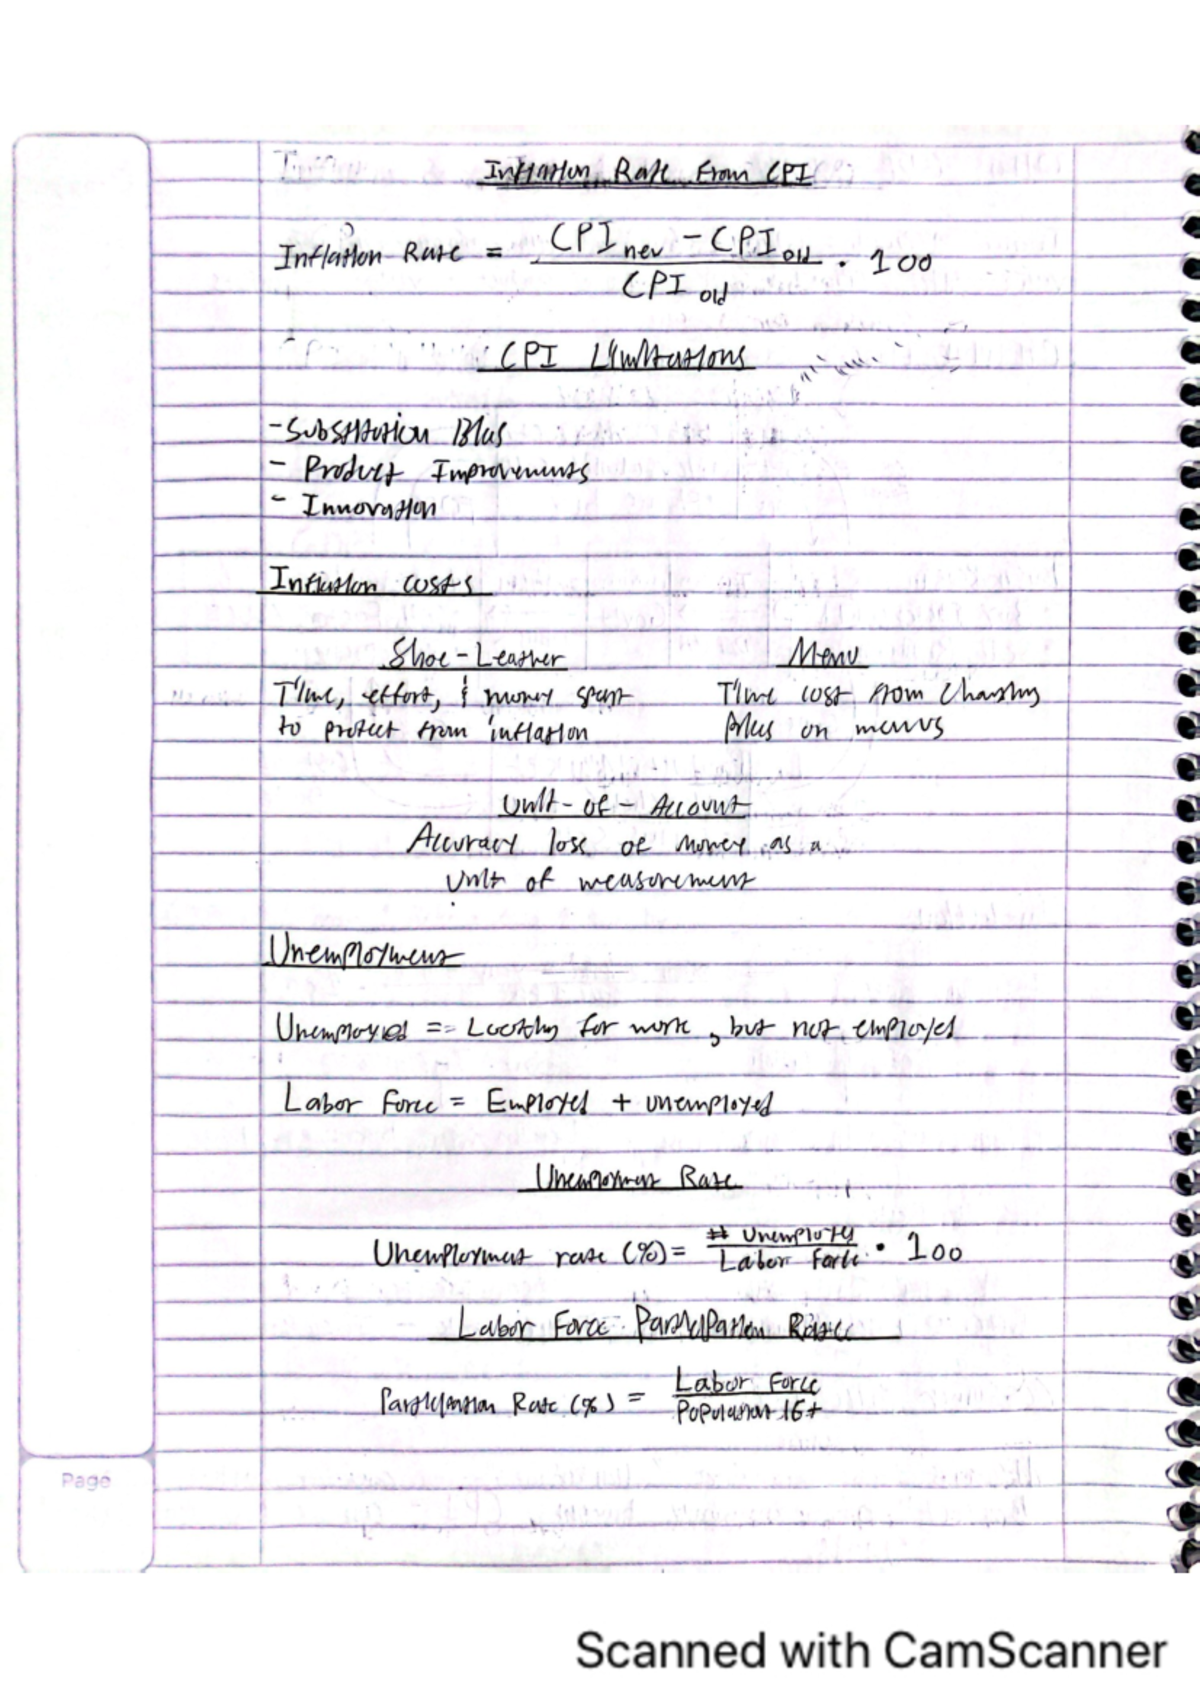 Inflation Rate From CPI
Inflation Rate = CPI new - CPI old / CPI old · 100
CPI Limitations
- Substitution Bias
- Product Improvements
- Innovation
Inflation Costs
Shoe-Leather Menu
Time, effort, & money spent Time cost from changing
to protect from inflation prices on menus
Unit-of-Account
Accuracy loss of money as a
unit of measurement
Unemployment
Unemployed == Looking for work, but not employed
Labor Force = Employed + unemployed
Unemployment Rate
Unemployment rate (%) = # Unemployed / Labor Force · 100
Labor Force Participation Rate
Participation Rate (%) = Labor Force / Population 16+
Page
Scanned with CamScanner